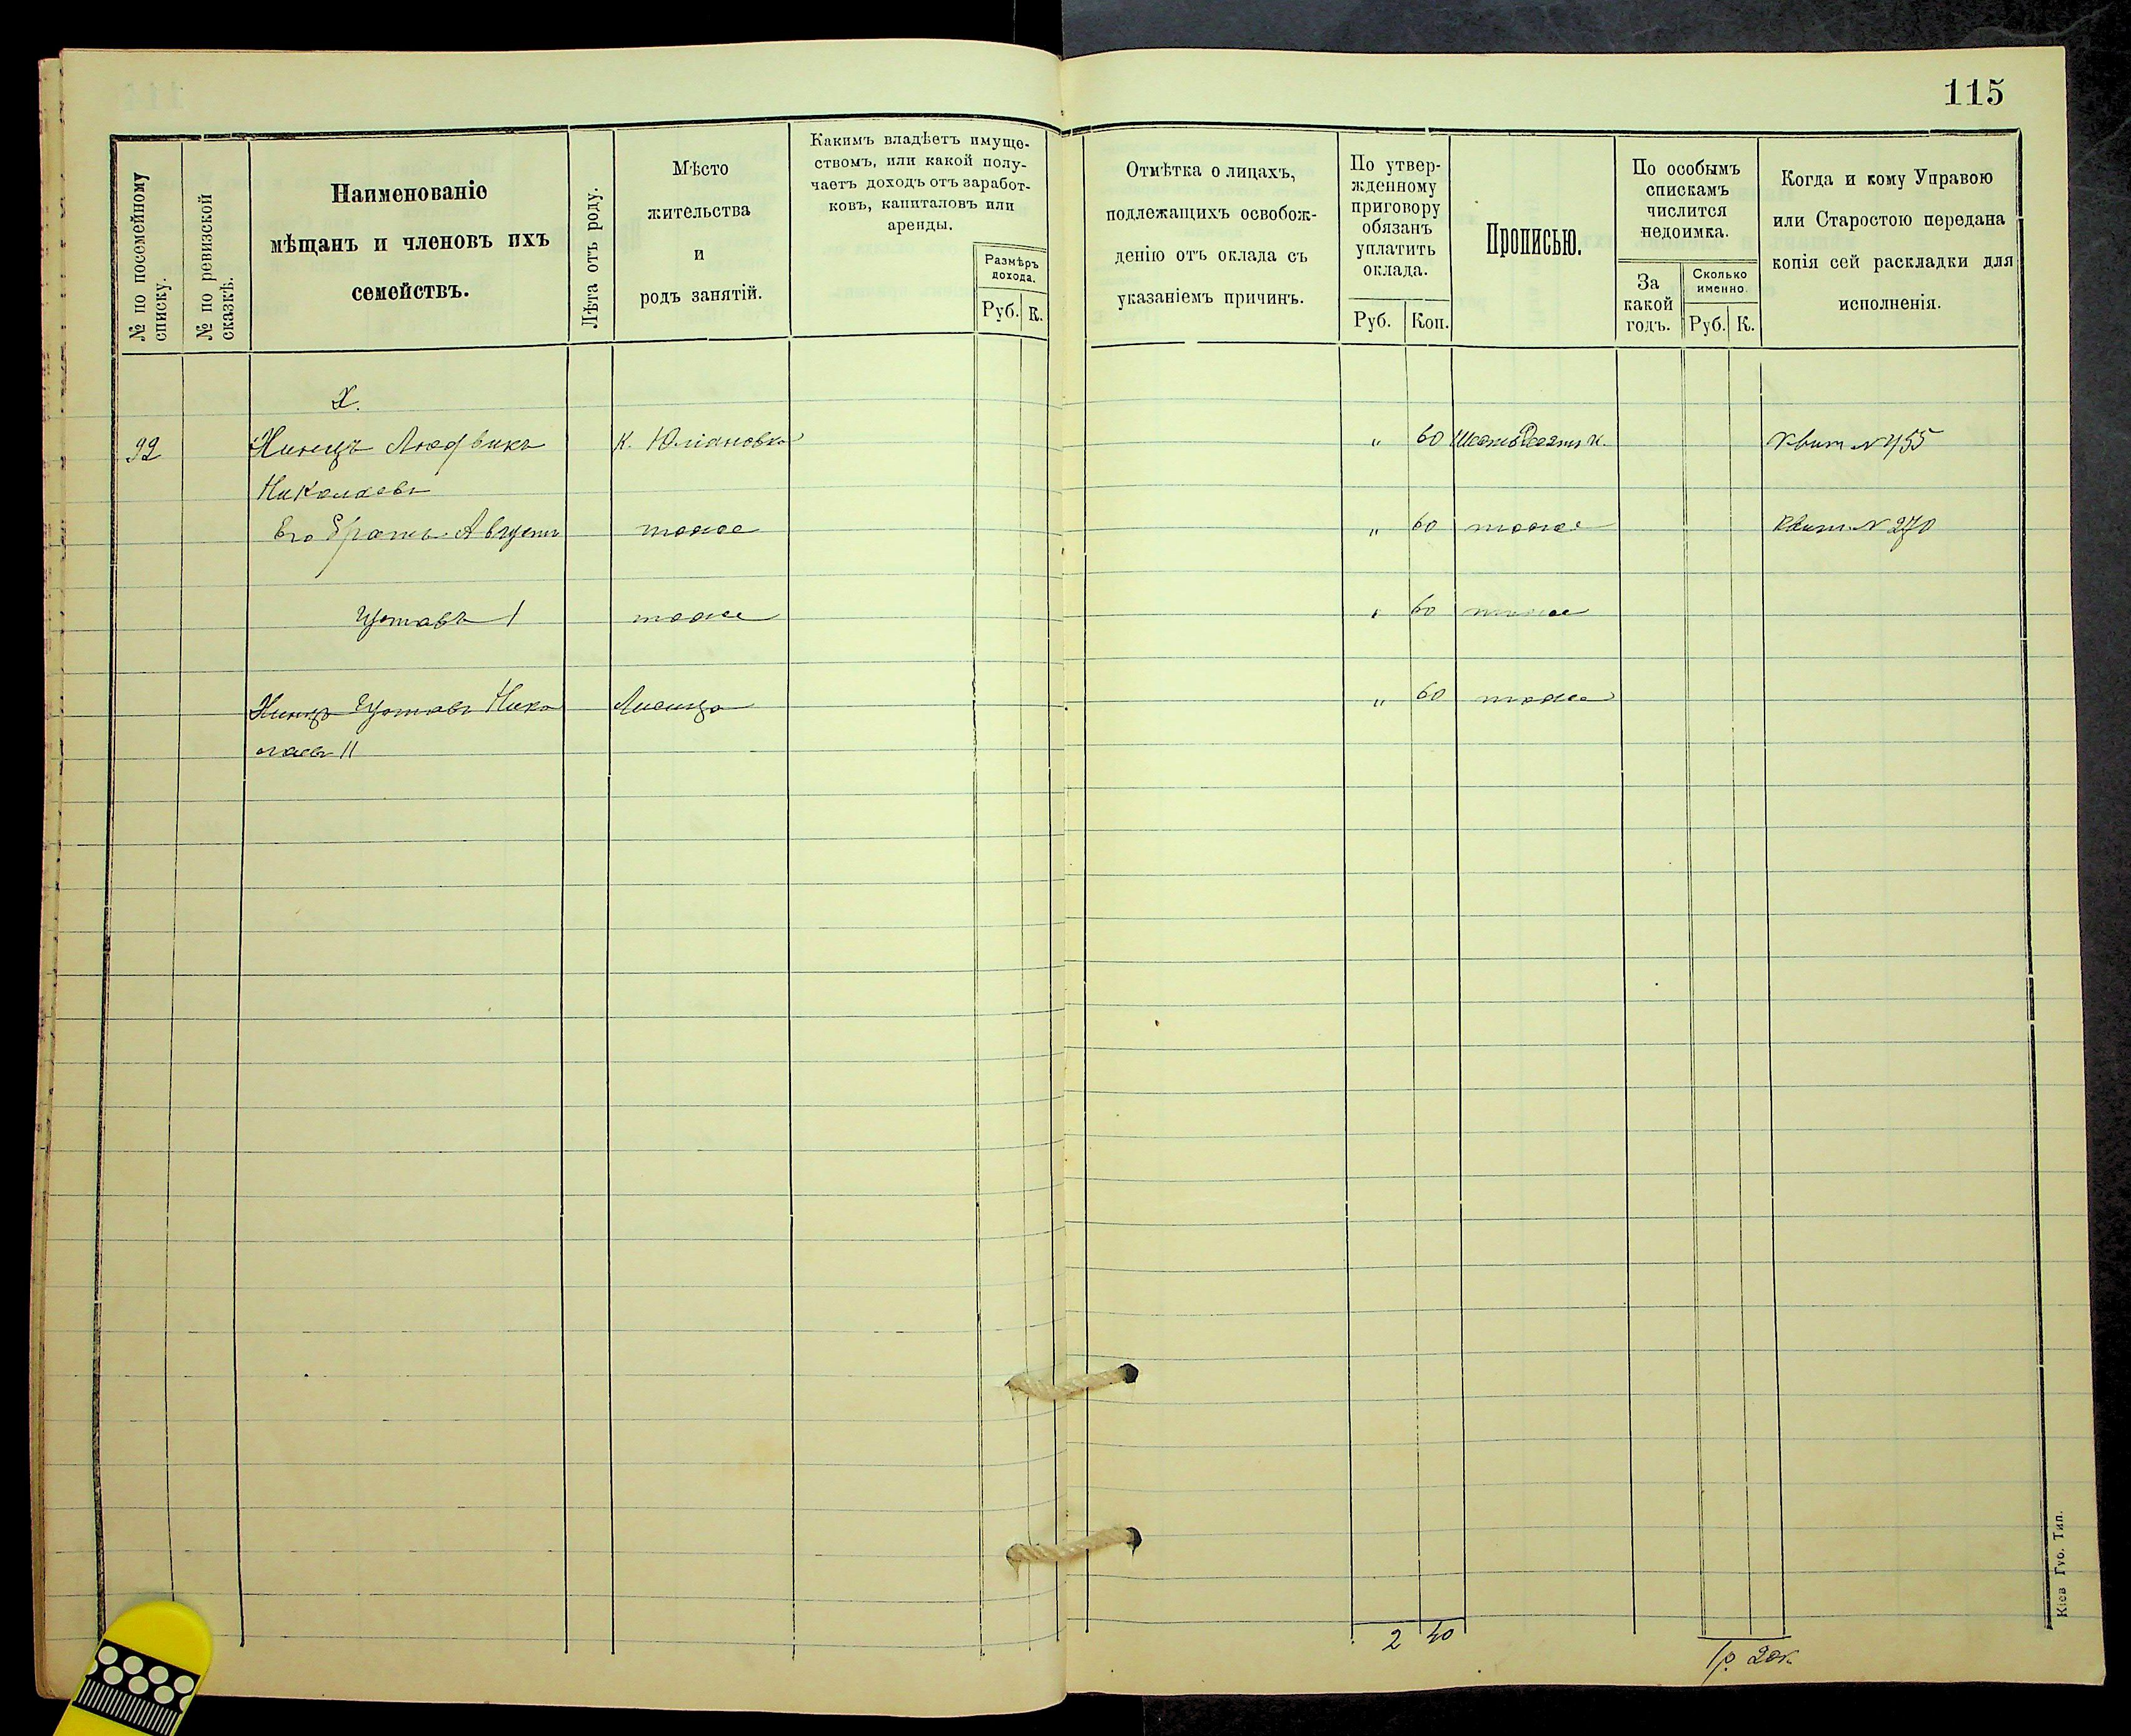 115
№ по посемейному списку.
№ по ревизской сказкѣ.
Наименованіе
мѣщанъ и членовъ ихъ
семействъ.
Лѣта отъ роду.
Мѣсто
жительства
и
родъ занятій.
Какимъ владѣетъ имуще-
ствомъ, или какой полу-
чаетъ доходъ отъ заработ-
ковъ, капиталовъ или
аренды.
Размѣръ
дохода.
Руб. К.
Отмѣтка о лицахъ,
подлежащихъ освобож-
денію отъ оклада съ
указаніемъ причинъ.
По утвер-
жденному
приговору
обязанъ
уплатить
оклада.
Руб. Коп.
Прописью.
По особымъ
спискамъ
числится
недоимка.
За
какой
годъ.
Сколько
именно.
Руб. К.
Когда и кому Управою
или Старостою передана
копія сей раскладки для
исполненія.
Х.
92 Хинцъ Людвикъ К. Юліановка " 60 Шестьдесятъ к. Квит № 455
Николаевъ
Его братъ Августъ тоже " 60 тоже Квит. № 270
Густавъ I тоже " 60 тоже
Хинцъ Густавъ Нико Лисицо " 60 тоже
лаевъ II
2 40
1р. 20к.
Кіев Губ. Тип.